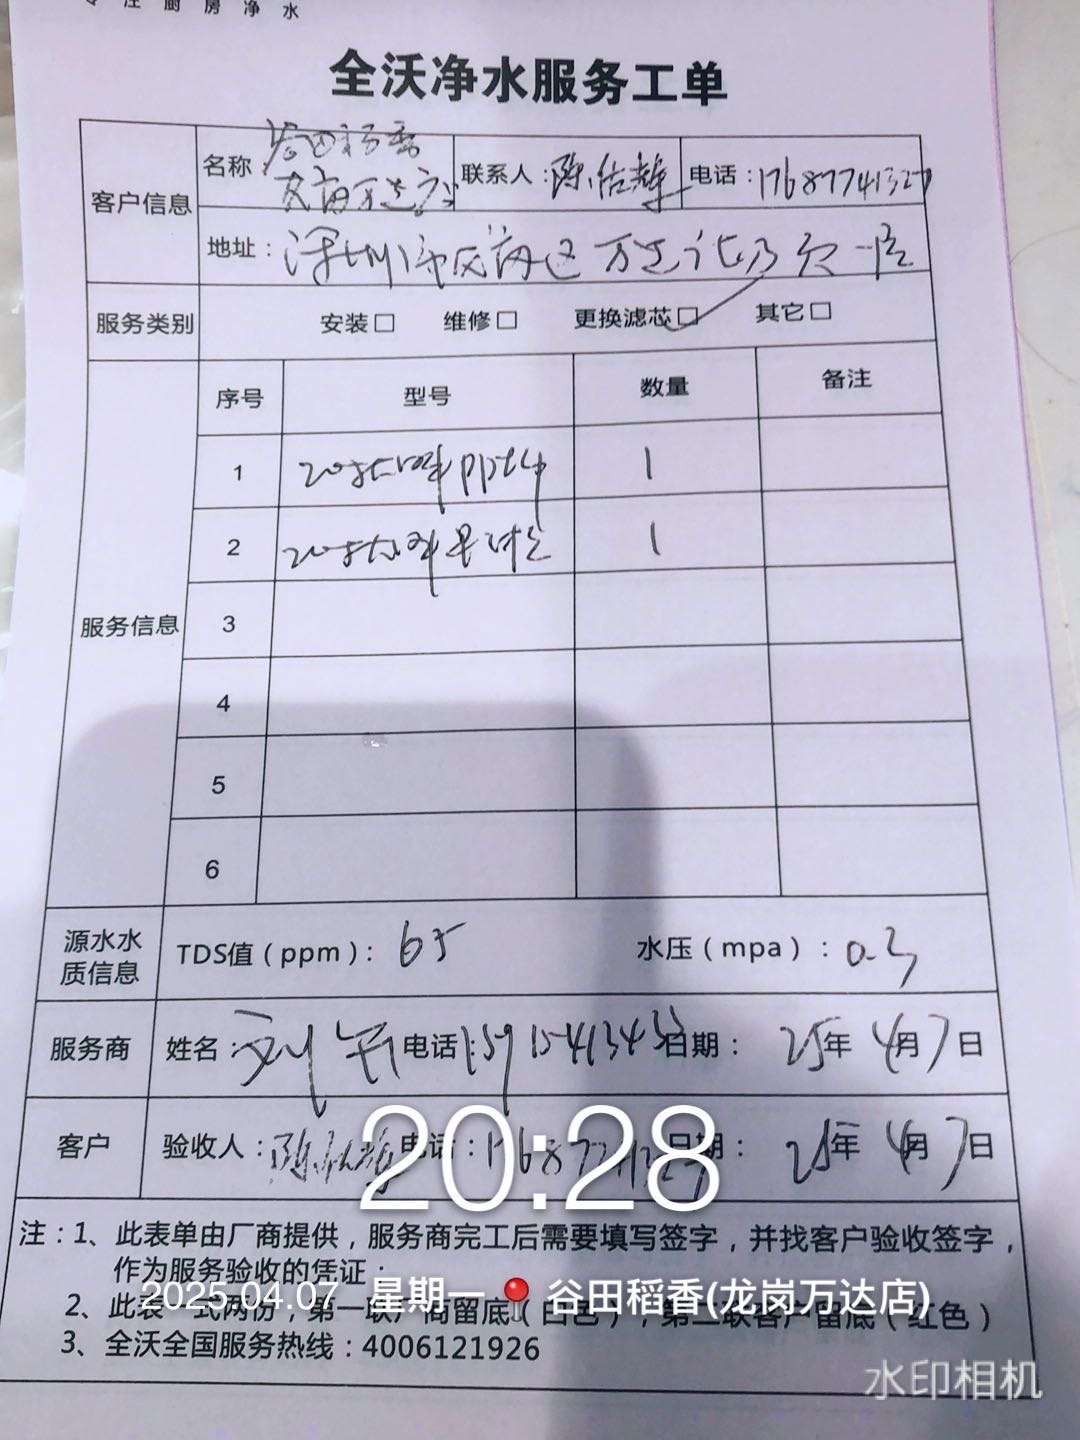 厨房净水
全沃净水服务工单
客户信息
名称 谷田稻香
龙岗万达店
联系人：陈 电话：17687741327
地址：深圳市龙岗区万达广场 一层
服务类别 安装□ 维修□ 更换滤芯□✓ 其它□
服务信息
序号 型号 数量 备注
1 20寸大胖PP棉 1
2 20寸大胖 1
3
4
5
6
源水水质信息
TDS值（ppm）：65 水压（mpa）：0.3
服务商 姓名：刘 电话： 日期：25年4月7日
客户 验收人：陈 电话： 日期：25年4月7日
20:28
注：1、此表单由厂商提供，服务商完工后需要填写签字，并找客户验收签字，
作为服务验收的凭证；
2025.04.07 星期一 谷田稻香(龙岗万达店)
2、此表一式两份，第一联厂商留底（白色），第二联客户留底（红色）
3、全沃全国服务热线：4006121926
水印相机